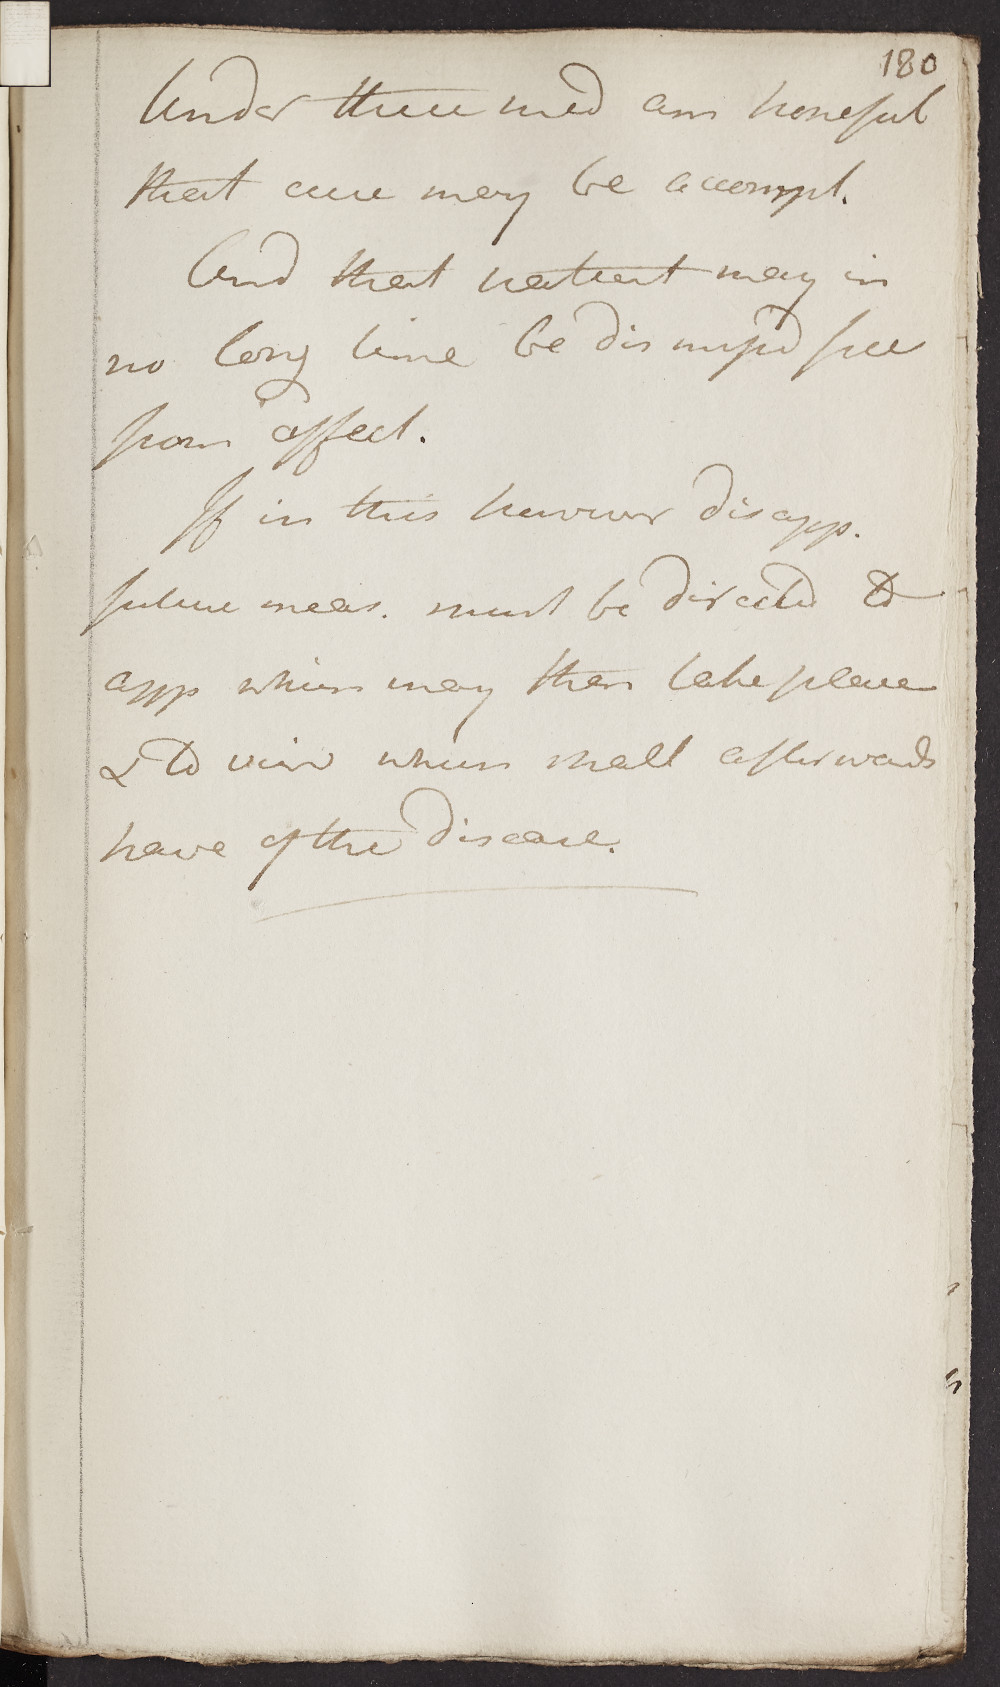 180
Under these med am hopeful
that cure may be accompl.
And that patient may in
no long time be dismissd free
from affect.
If in this however disapp.
future meas. must be directed to
app which may then take place
& to view which shall afterwards
have of the disease.